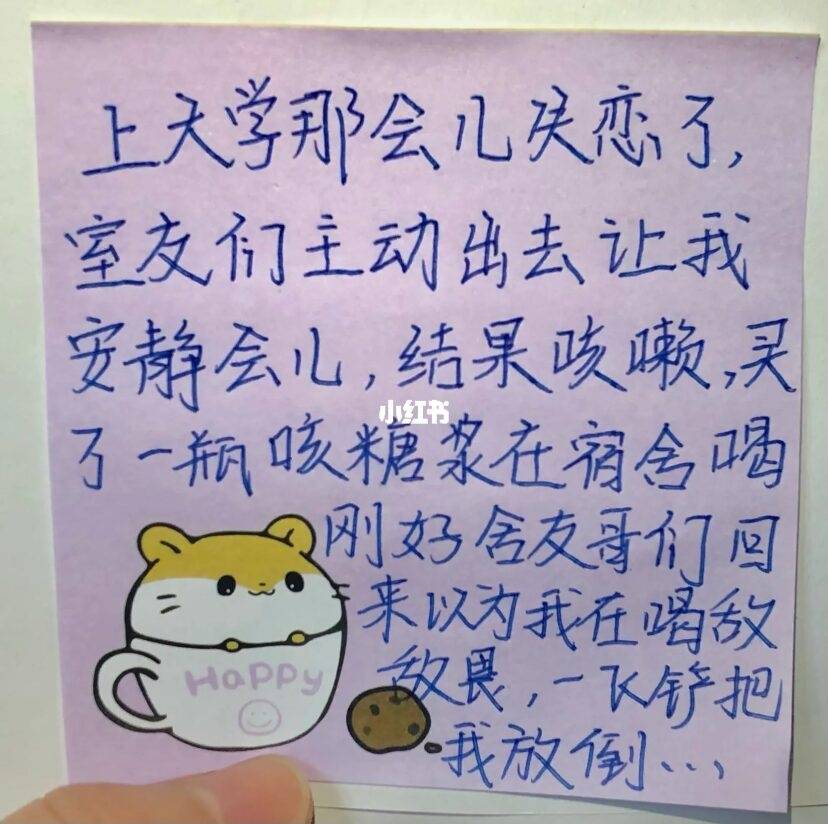 上大学那会儿失恋了,
室友们主动出去让我
安静会儿,结果咳嗽,买
了一瓶咳糖浆在宿舍喝
刚好舍友哥们回
来以为我在喝敌
敌畏,一飞铲把
我放倒...
小红书
Happy